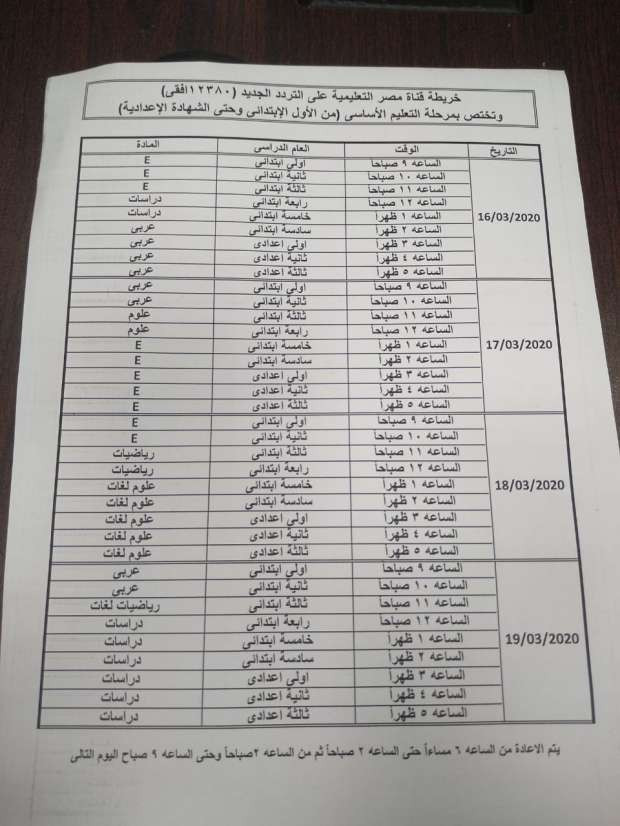 خريطة قناة مصر التعليمية على التردد الجديد (١٢٣٨٠افقى)
وتختص بمرحلة التعليم الأساسى (من الأول الإبتدائى وحتى الشهادة الإعدادية)
التاريخ الوقت العام الدراسى المادة
16/03/2020
الساعه ٩ صباحاً اولي ابتدائى E
الساعه ١٠ صباحاً ثانية ابتدائى E
الساعه ١١ صباحاً ثالثة ابتدائى E
الساعه ١٢ صباحاً رابعة ابتدائى دراسات
الساعه ١ ظهراً خامسة ابتدائى دراسات
الساعه ٢ ظهراً سادسة ابتدائى عربى
الساعه ٣ ظهراً اولي اعدادى عربى
الساعه ٤ ظهراً ثانية اعدادى عربى
الساعه ٥ ظهراً ثالثة اعدادى عربى
17/03/2020
الساعه ٩ صباحاً اولي ابتدائى عربى
الساعه ١٠ صباحاً ثانية ابتدائى عربى
الساعه ١١ صباحاً ثالثة ابتدائى علوم
الساعه ١٢ صباحاً رابعة ابتدائى علوم
الساعه ١ ظهراً خامسة ابتدائى E
الساعه ٢ ظهراً سادسة ابتدائى E
الساعه ٣ ظهراً اولي اعدادى E
الساعه ٤ ظهراً ثانية اعدادى E
الساعه ٥ ظهراً ثالثة اعدادى E
18/03/2020
الساعه ٩ صباحاً اولي ابتدائى E
الساعه ١٠ صباحاً ثانية ابتدائى E
الساعه ١١ صباحاً ثالثة ابتدائى رياضيات
الساعه ١٢ صباحاً رابعة ابتدائى رياضيات
الساعه ١ ظهراً خامسة ابتدائى علوم لغات
الساعه ٢ ظهراً سادسة ابتدائى علوم لغات
الساعه ٣ ظهراً اولي اعدادى علوم لغات
الساعه ٤ ظهراً ثانية اعدادى علوم لغات
الساعه ٥ ظهراً ثالثة اعدادى علوم لغات
19/03/2020
الساعه ٩ صباحاً اولي ابتدائى عربى
الساعه ١٠ صباحاً ثانية ابتدائى عربى
الساعه ١١ صباحاً ثالثة ابتدائى رياضيات لغات
الساعه ١٢ صباحاً رابعة ابتدائى دراسات
الساعه ١ ظهراً خامسة ابتدائى دراسات
الساعه ٢ ظهراً سادسة ابتدائى دراسات
الساعه ٣ ظهراً اولي اعدادى دراسات
الساعه ٤ ظهراً ثانية اعدادى دراسات
الساعه ٥ ظهراً ثالثة اعدادى دراسات
يتم الاعادة من الساعه ٦ مساءاً حتى الساعه ٢ صباحاً ثم من الساعه ٢صباحاً وحتى الساعه ٩ صباح اليوم التالى